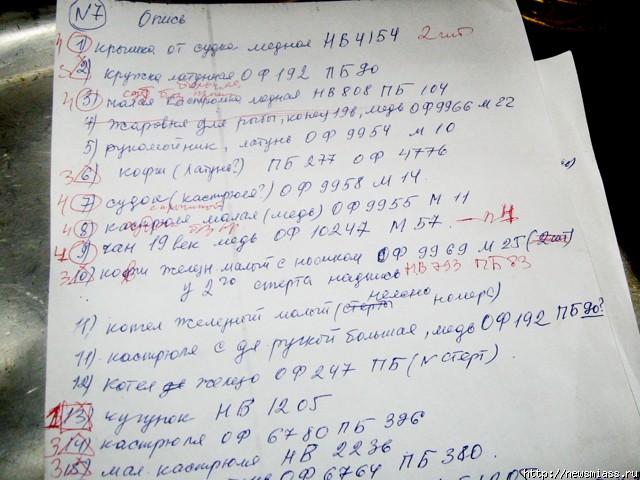 N7 Опись
4 1) крышка от судка медная НВ4154 2 шт
2) кружка латунная ОФ192 ПБ20
4 3) малая кастрюлька медная НВ808 ПБ 104
7) жаровня для рыбы, конец 19в, медь ОФ9966 М 22
5) рукомойник, латунь ОФ 9954 М 10
3 6) кофик (латунь?) ПБ 277 ОФ 4776
4 7) судок (кастрюля?) ОФ 9958 М 14.
с крышкой
4 8) кастрюля малая (медь) ОФ9955 М 11
4 9) чан 19 век медь ОФ 10247 М 57.
3 10) железн. малый с носиком ОФ 9969 М 25 (2шт)
у 2го стерта надпись НВ793 ПБ 83
неясно
11) котел железный малый (стерты номера)
11) кастрюля с ручкой большая, медь ОФ192 ПБ20?
12) Котел железо ОФ247 ПБ (N стерт)
1 13) чугунок НВ 1205
3 14) кастрюля ОФ 6780 ПБ 396
3 15) мал. кастрюля НВ 2236
ОФ 6764 ПБ 380.
http://newsmiass.ru